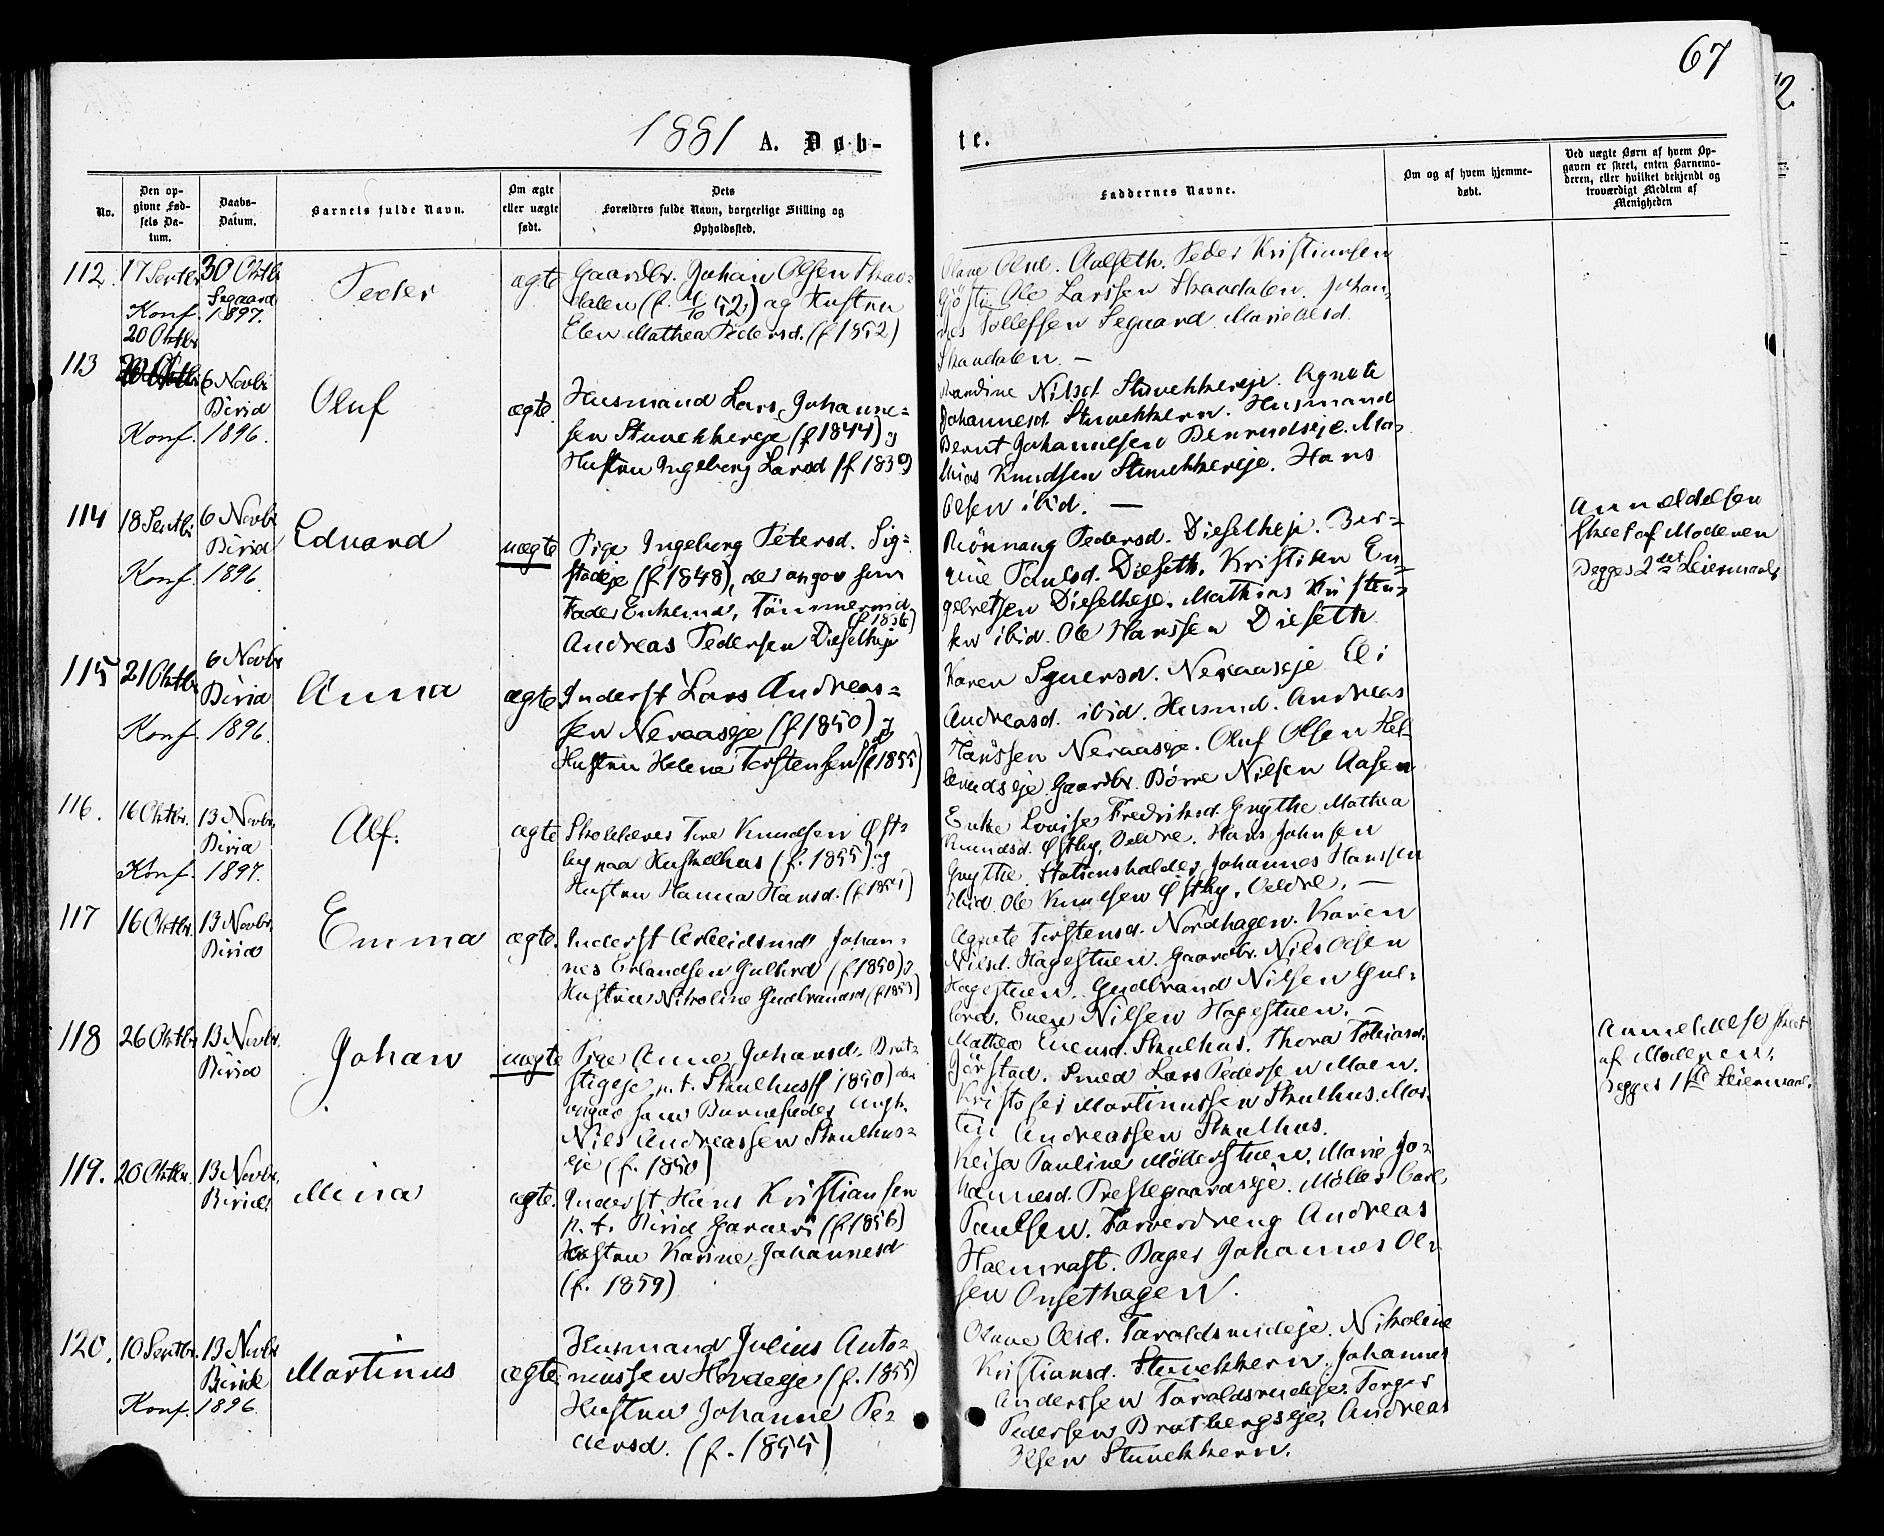 67
1881 A. Døbte.
No.
Den opgivne Fødsels Datum.
Daabs-Datum.
Barnets fulde Navn.
Om ægte eller uægte født.
Dets Forældres fulde Navn, borgerlige Stilling og Opholdssted.
Faddernes Navne.
Om og af hvem hjemmedøbt.
Ved uægte Børn af hvem Opgaven er skeet, enten Barnemoderen, eller hvilket bekjendt og troværdigt Medlem af Menigheden
112. 17 Septbr 30 Oktbr Peder ægte
Konf. 1897.
Gaardbr. Johan Olsen Skaardalen (f. 52) og Hustru
Elen Mathea Pedersd. (f 1852)
Olsd. Aalseth. Peder Kristiansen
Ole Larssen Skaardalen. Johannes
Tollefsen Segaard. Marie Olsd.
Skaardalen. —
113 20 Oktbr 6 Novbr Birid Oluf ægte.
Konf. 1896.
Husmand Lars Johanne-
sen Stuvekkereje (f 1844) og
Hustru Ingeborg Larsd (f 1839)
Randine Nilsd. Stuvekkereje. Agnete
Johannesd. Stuvekkern. Husmand
Bernt Johannesen Benrudseje. Ma-
thias Knudsen Stuvekkereje. Hans
Olsen ibid. —
114 18 Septbr 6 Novbr Birid Edvard uægte
Konf. 1896.
Pige Ingeborg Petersd. Sig-
stadeje (f 1848), der angav som
Fader Enkemd, Tömmermd
(f 1836)
Andreas Pedersen Diesetheje
Rönnaug Pedersd. Diesetheje. Ber-
Paulsd. Dieseth. Kristian En-
gebretsen Diesetheje. Mathias Kristen-
sen ibid. Ole Hanssen Dieseth
Anmeldelsen
skeet af Moderen
Begges 2det Leiermaal
115 21 Oktbr 6 Novbr Birid Anna ægte
Konf. 1896.
Inderst Lars Andreas-
sen Neraaseje (f 1850) og
Hustru Helene Torstensen (f 1855)
Karen Syversd. Neraaseje. Eli
Andreasd. ibid. Husmd. Andreas
Hanssen Neraaseje. Oluf Olsen
Gaardbr. Börre Nilsen Aasen
116. 16 Oktbr. 13 Novbr. Birid Alf. ægte
Konf. 1897.
Skolelærer Tore Knudsen Øst-
by paa Huskelhus (f. 1855) og
Hustru Hanna Hansd. (f 1851)
Enke Lovise Fredriksd Grythe. Mathea
Knudsd. Østby, Veldre. Hans Johnsen
Grythe. Stationsholder Johannes Hanssen
ibid. Ole Knudsen Østby, Veldre. —
117 16 Oktbr. 13 Novbr. Birid Emma ægte.
Inderst Arbeidsmd Johan-
nes Erlandsen Gullord (f 1850) og
Hustru Nikoline Gudbrandsd (f 1853)
Agnete Torstensd. Nordhagen. Karen
Nilsd. Hagestuen. Gaardbr. Nils Olsen
Hagestuen. Gudbrand Nilsen Gul-
lord. Even Nilsen Hagestuen. —
118 26 Oktbr 13 Novbr. Birid Johan uægte
Pige Anne Johansd. Brat-
stigeje p. t. Skulhus (f 1850) der
angav som Barnefader Ungk.
Nils Andreassen Skulhus-
eje (f. 1850)
Mathea Evensd. Skulhus. Thora Tobiasd.
Gjörstad. Smed Lars Pedersen Moen.
Kristofer Martinussen Skulhus. Mar-
tin Andreassen Skulhus.
Anmeldelse skeet
af Moderen.
Begges 1ste Leiermaal.
119. 20 Oktbr. 13 Novbr. Birid Mina ægte.
Inderst Hans Kristiansen
p. t. Birid Garveri (f. 1856)
Hustru Karine Johannesd
(f. 1859)
Pauline Möllerstuen. Marie Jo-
hannesd. Prestegaardseje. Möller Carl
Paulsen. Farverdreng Andreas
Holmrast. Bager Johannes Ol-
sen Onsethagen.
120. 10 Septbr. 13 Novbr Birid Martinus ægte
Konf. 1896.
Husmand Julius Anto-
niussen Hovdeeje (f. 1855)
Hustru Johanne Pe-
dersd. (f. 1855)
Olsd. Taraldsrudeje. Nikoline
Kristiansd. Stuvekkern. Johannes
Anderssen Taraldsrudeje. Torger
Pedersen Bratbergseje. Andreas
Olsen Stuvekkern.